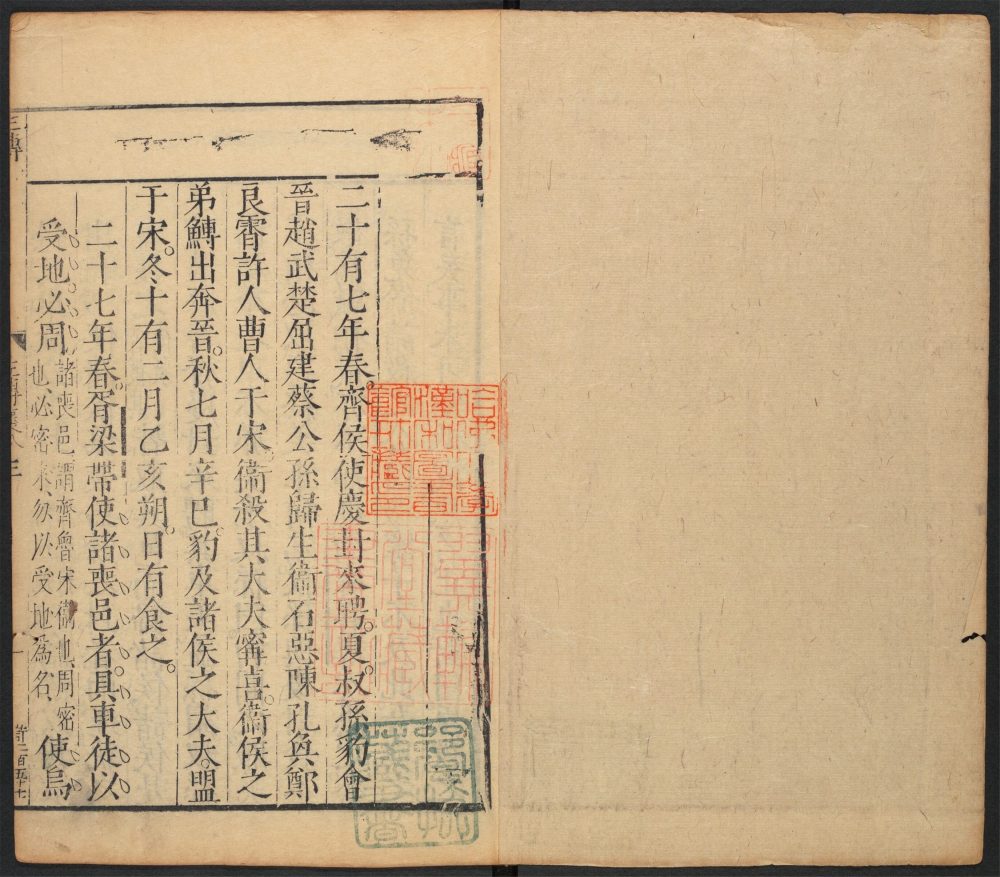 二十有七年春。齊侯使慶封來聘。夏。叔孫豹會
晉趙武楚屈建蔡公孫歸生衞石惡陳孔奐鄭
良霄許人曹人于宋。衞殺其大夫甯喜。衞侯之
弟鱄出奔晉。秋七月辛巳。豹及諸侯之大夫。盟
于宋。冬十有二月乙亥朔。日有食之。
二十七年春。胥梁帶使諸喪邑者。具車徒以
受地必周諸喪邑謂齊魯宋衞也周密
也必密來勿以受地爲名使烏
哈佛大學漢和圖書館珍藏印